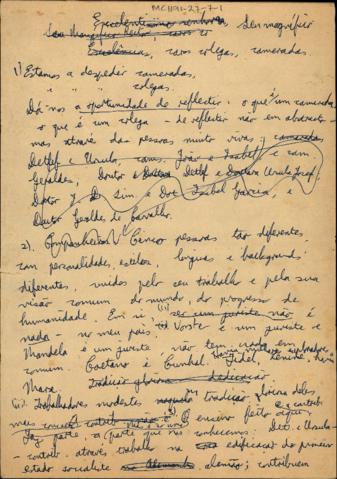 MC1191-27-7-1
Excelentíssimo senhores, Seu magnífico
Seu Magnífico Reitor, caros co
Excelências, caros colegas, camaradas.
1) Estamos a despedir camaradas,
" " " colegas.
Dá-nos a oportunidade de reflectir: o que é um camarada
o que é um colega - de reflectir não em abstracto -
mas através das pessoas muito vivas; camaradas
Detlef e Ursula, cams. João e Isabel e cam.
Geraldes, Doutor Detlef e Doutora Ursula Josef,
Doutor J. D. Sim e Dra Isabel Garcia, e
Doutor Geraldes de Carvalho.
2). Companheiros. Cinco pessoas tão diferentes
com personalidades, estilos, línguas e backgrounds
diferentes, unidos pelo seu trabalho e pela sua
visão comum do mundo, do progresso de
humanidade. Em si, ser um jurista não é
nada - no meu país Vorster é um jurista e
Mandela é um jurista, não tem nada em
comum. Caetano e Cunhal. Fidel, Lenine,
Marx.
(ii) Trabalhadores modestos tradição gloriosa deles
mais O ensino feito aqui,
faz parte, a parte que nós conhecemos. Det. e Ursula -
contrib. através trabalho na edificação do primeiro
estado socialista alemão; contribuem